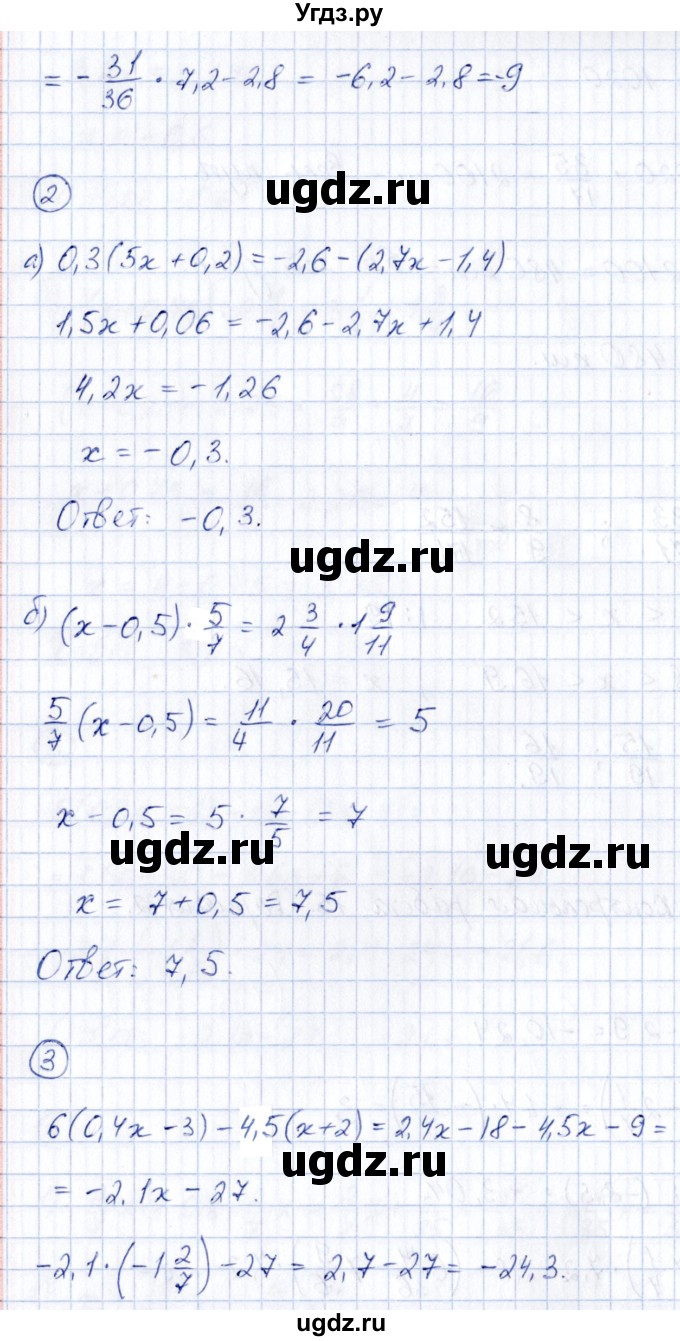 Угдз.ру
= - 31/36 · 7,2 - 2,8 = -6,2 - 2,8 = -9
2
ugdz.ru
а) 0,3(5x + 0,2) = -2,6 - (2,7x - 1,4)
1,5x + 0,06 = -2,6 - 2,7x + 1,4
4,2x = -1,26
x = -0,3.
Ответ: -0,3.
ugdz.ru
б) (x - 0,5) · 5/7 = 2 3/4 · 1 9/11
5/7 (x - 0,5) = 11/4 · 20/11 = 5
x - 0,5 = 5 · 7/5 = 7
ugdz.ru ugdz.ru
x = 7 + 0,5 = 7,5
Ответ: 7,5.
3
6(0,4x - 3) - 4,5(x + 2) = 2,4x - 18 - 4,5x - 9 =
ugdz.ru
= -2,1x - 27.
-2,1 · (-1 2/7) - 27 = 2,7 - 27 = -24,3.
ugdz.ru